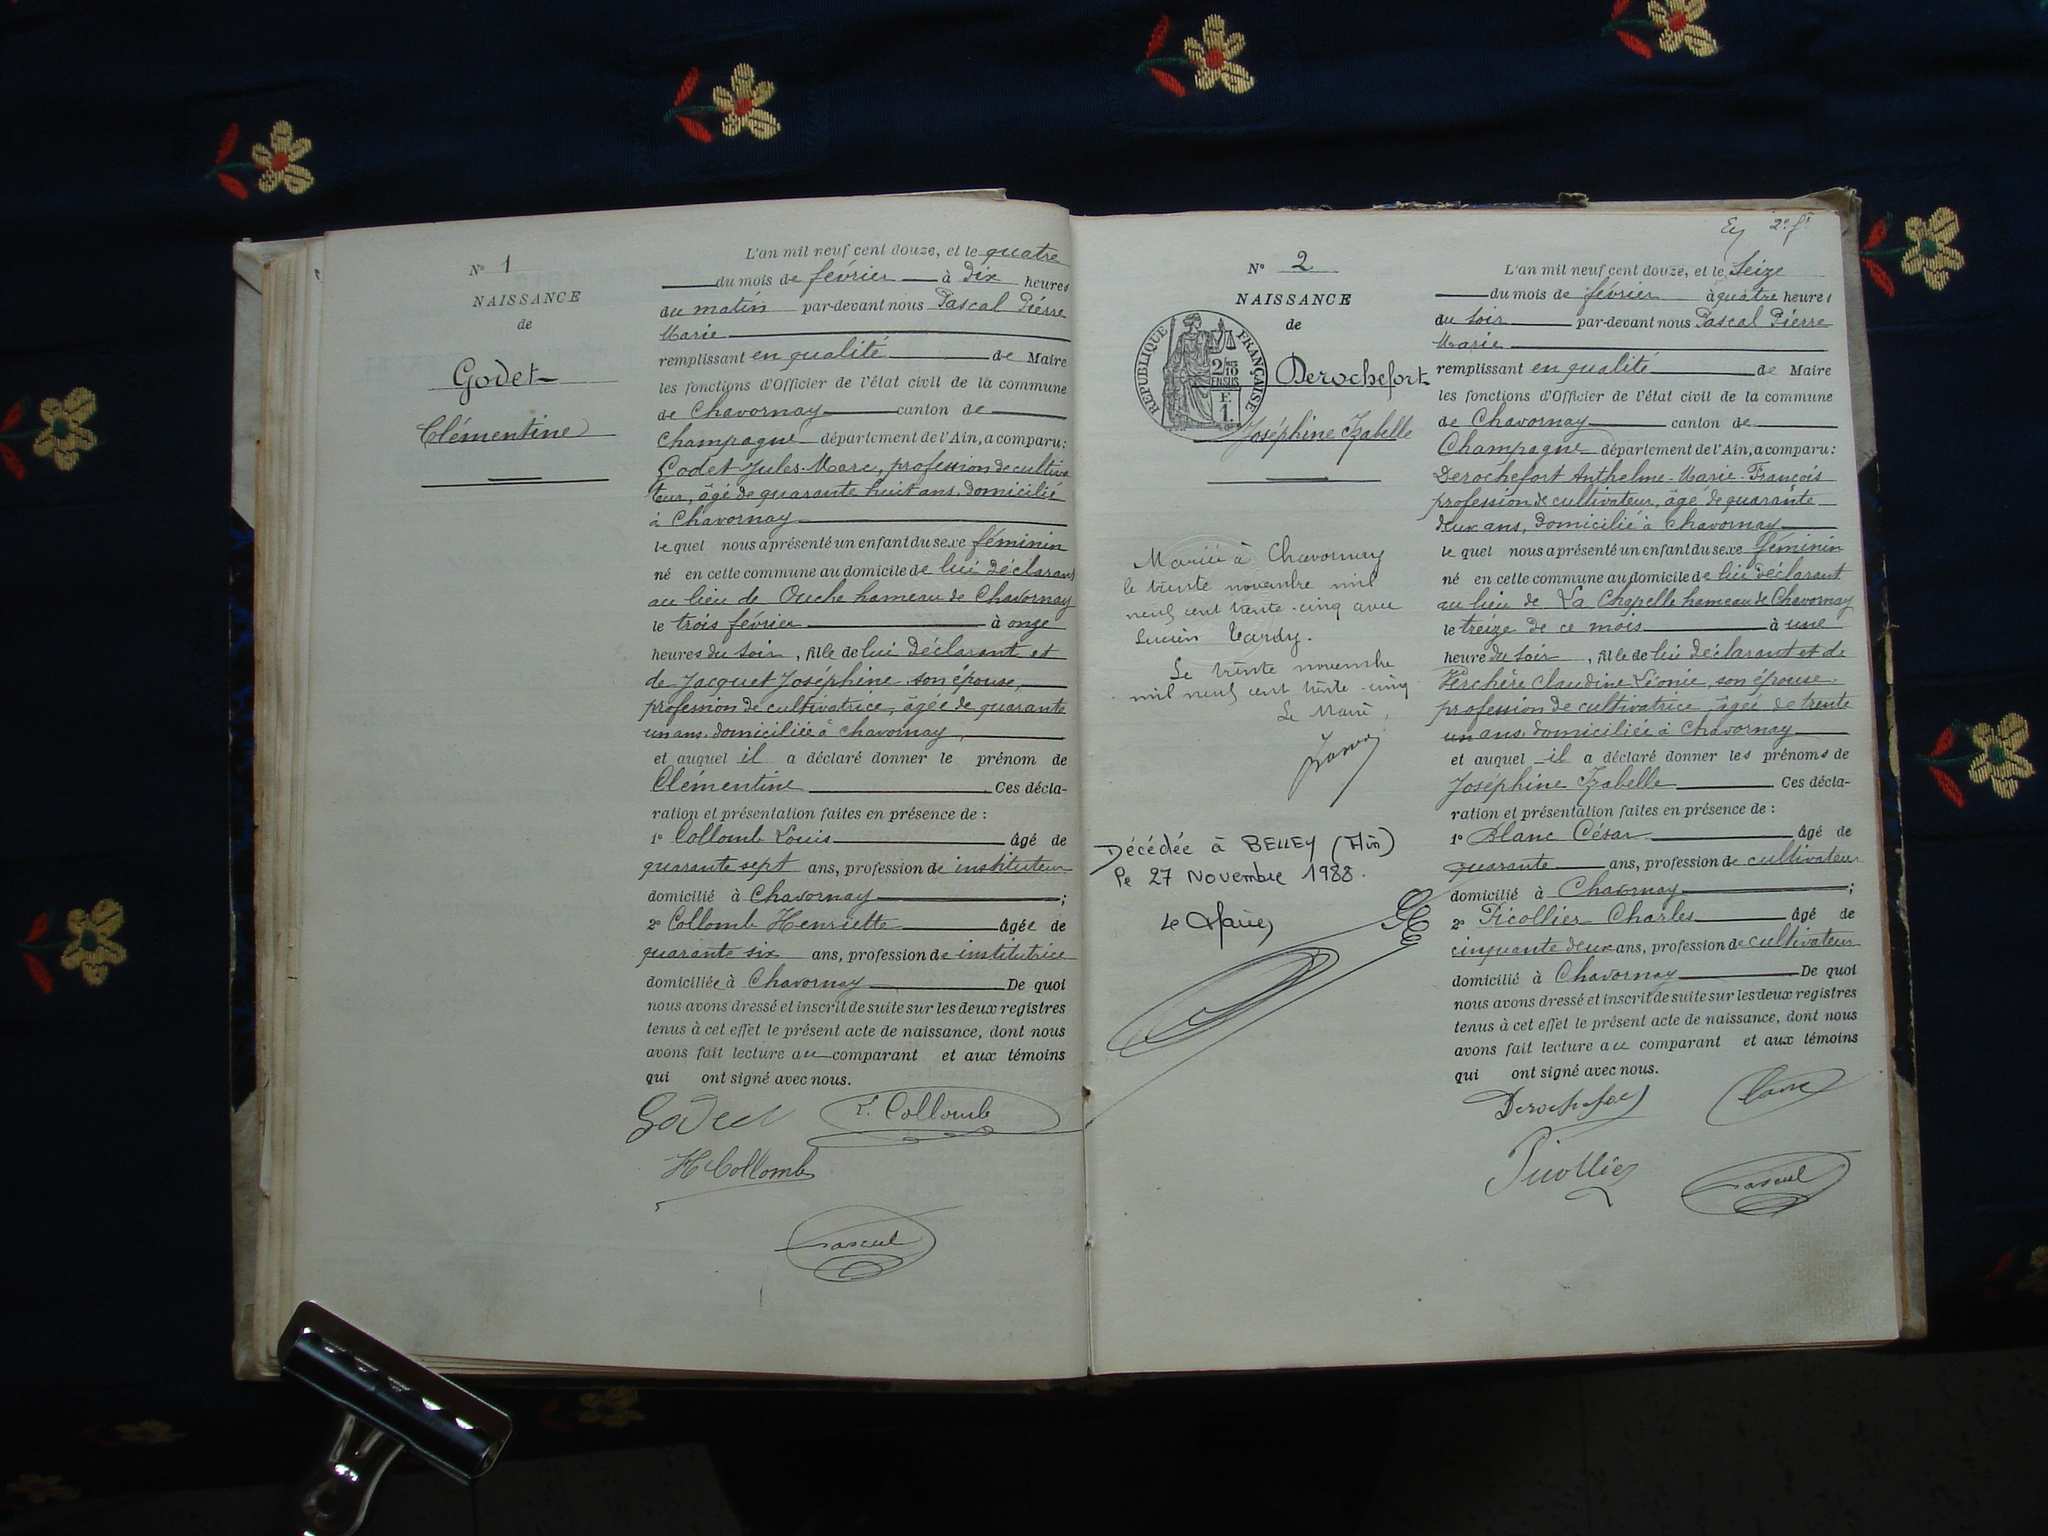 N° 1
NAISSANCE
de
Godet
Clémentine
L'an mil neuf cent douze, et le quatre
du mois de février à dix heures
du matin par-devant nous Pascal Pierre
Marie
remplissant en qualité de Maire
les fonctions d'Officier de l'état civil de la commune
de Chavornay canton de
Champagne département de l'Ain, a comparu:
Godet Jules-Marc, profession de cultiva
teur, âgé de quarante huit ans, domicilié
à Chavornay
le quel nous a présenté un enfant du sexe féminin
né en cette commune au domicile de lui déclarant
au lieu de Ouche hameau de Chavornay
le trois février à onze
heures du soir, fille de lui déclarant et
de Jacquet Joséphine son épouse,
profession de cultivatrice, âgée de quarante
un ans, domiciliée à Chavornay,
et auquel il a déclaré donner le prénom de
Clémentine Ces décla-
ration et présentation faites en présence de :
1° Collomb Louis âgé de
quarante sept ans, profession de instituteur
domicilié à Chavornay ;
2° Collomb Henriette âgée de
quarante six ans, profession de institutrice
domiciliée à Chavornay De quoi
nous avons dressé et inscrit de suite sur les deux registres
tenus à cet effet le présent acte de naissance, dont nous
avons fait lecture au comparant et aux témoins
qui ont signé avec nous.
Godet L. Collomb
H Collomb
Pascal
2e ft
N° 2
NAISSANCE
de
RÉPUBLIQUE FRANÇAISE
2/10
EN SUS
E
1
Derochefort
Joséphine Izabelle
Mariée à Chavornay
le trente novembre mil
neuf cent trente-cinq avec
Lucien Tardy.
Le trente novembre
mil neuf cent trente-cinq
Le Maire,
Décédée à BELLEY (Ain)
le 27 Novembre 1988.
Le Maire
L'an mil neuf cent douze, et le seize
du mois de février à quatre heures
du soir par-devant nous Pascal Pierre
Marie
remplissant en qualité de Maire
les fonctions d'Officier de l'état civil de la commune
de Chavornay canton de
Champagne département de l'Ain, a comparu:
Derochefort Anthelme-Marie-François
profession de cultivateur, âgé de quarante
deux ans, domicilié à Chavornay
le quel nous a présenté un enfant du sexe féminin
né en cette commune au domicile de lui déclarant
au lieu de La Chapelle hameau de Chavornay
le treize de ce mois à une
heure du soir, fille de lui déclarant et de
Perchère Claudine Léonie, son épouse
profession de cultivatrice, âgée de trente
un ans, domiciliée à Chavornay
et auquel il a déclaré donner les prénoms de
Joséphine Izabelle Ces décla-
ration et présentation faites en présence de :
1° Blanc César âgé de
quarante ans, profession de cultivateur
domicilié à Chavornay ;
2° Picollier Charles âgé de
cinquante deux ans, profession de cultivateur
domicilié à Chavornay De quoi
nous avons dressé et inscrit de suite sur les deux registres
tenus à cet effet le présent acte de naissance, dont nous
avons fait lecture au comparant et aux témoins
qui ont signé avec nous.
Derochefort Blanc
Picollier Pascal